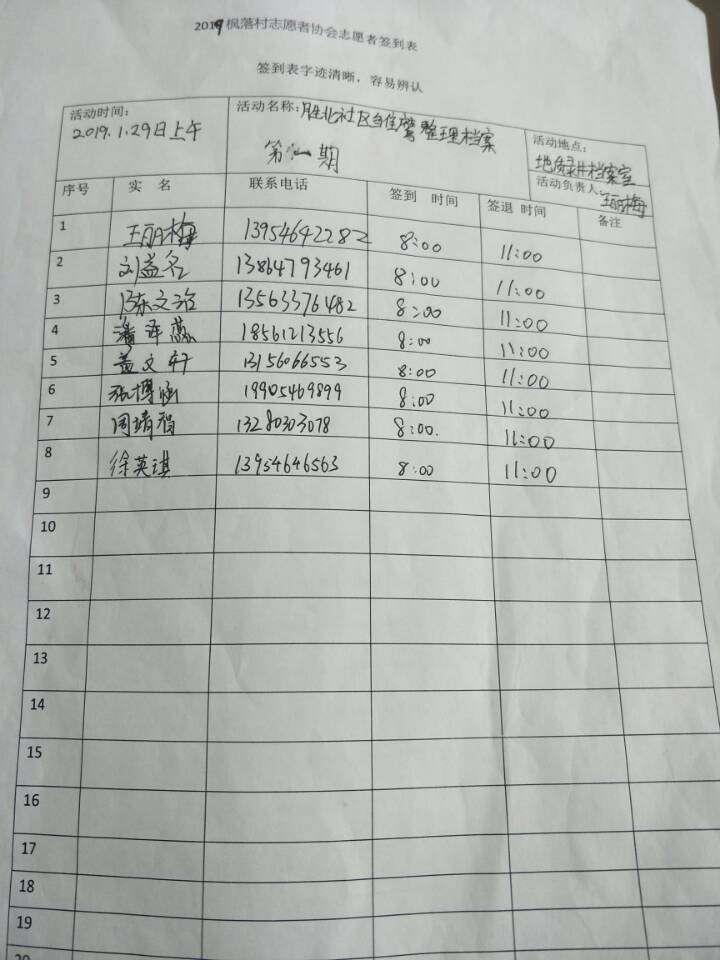 2019枫落村志愿者协会志愿者签到表
签到表字迹清晰，容易辨认
活动时间： 活动名称：胜北社区 整理档案 活动地点：
2019.1.29日上午 第一期 地质录井档案室
活动负责人：王丽梅
序号 实 名 联系电话 签到 时间 签退 时间 备注
1 王丽梅 13954642282 8:00 11:00
2 刘益名 13864793461 8:00 11:00
3 陈文治 13563376482 8:00 11:00
4 潘泽 18561213556 8:00 11:00
5 盖文轩 13156066553 8:00 11:00
6 张博涵 19905469899 8:00 11:00
7 周靖智 13280303078 8:00. 11:00
8 徐英琪 13954646563 8:00 11:00
9
10
11
12
13
14
15
16
17
18
19
20